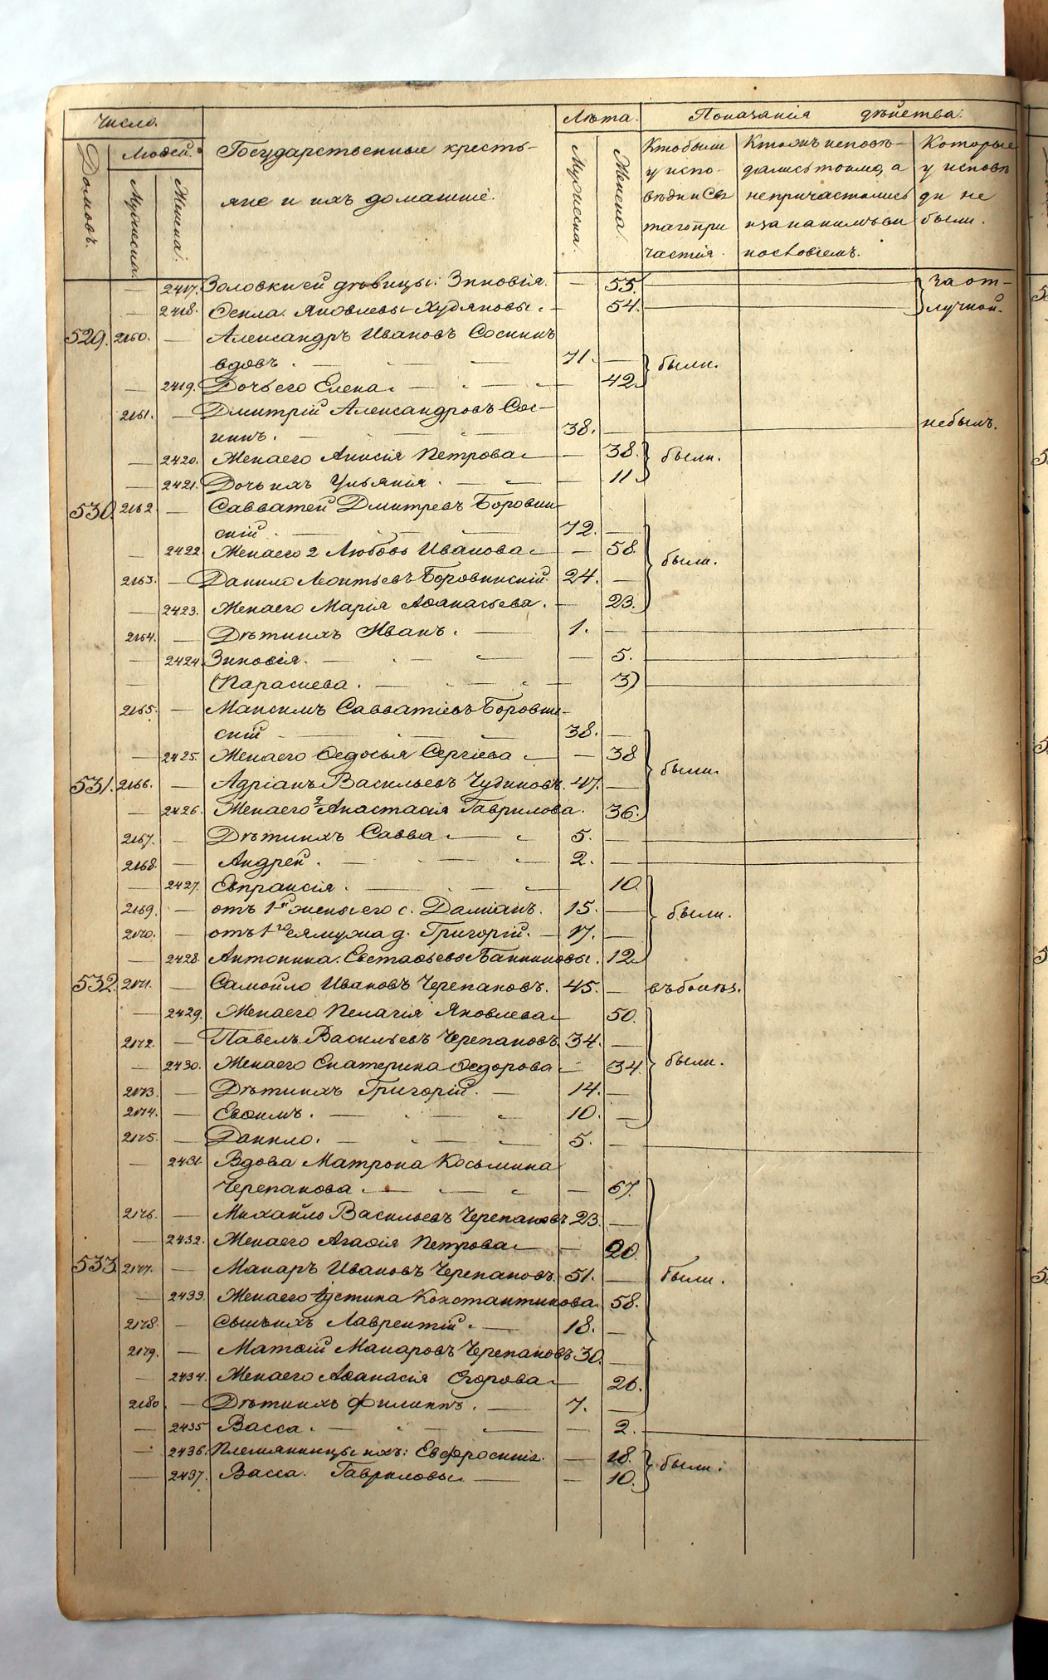 Число.
Людей.
Домовъ.
Мужеска.
Женска.
Государственные кресть-
яне и ихъ домашніе.
Лѣта.
Мужеска.
Женска.
Показанія дѣйства.
Кто были
у испо-
вѣди и Св
таго при
частія.
Кто жъ исповѣ-
дались токмо, а
не причастились
и за какимъ ви
нословіемъ.
Которые
у исповѣ
ди не
были.
— 2417. Золовки ей дѣвицы: Зиновія. — 55. за от-
— 2418. Ѳекла. Яковлевы Худяковы. — 54. лучкой.
529. 2160. — Александръ Ивановъ Соснинъ
вдовъ. 71. — были.
— 2419. Дочь его Елена. — 42.
2161. — Дмитрій Александровъ Сос-
нинъ. 38. — небылъ.
— 2420. Жена его Анисія Петрова — 38. были.
— 2421. Дочь ихъ Ульянія. — 11.
530. 2162 — Савватей Дмитревъ Боровин
скій 72. —
— 2422 Жена его 2 Любовь Иванова — 58. были.
2163. — Данило Леонтьевъ Боровинскій. 24. —
— 2423. Жена его Марія Аѳанасьева. — 23.
2164. — Дѣти ихъ Иванъ. 1. —
— 2424 Зиновія. — 5.
— (Параскева. — 3)
2165. — Максимъ Савватіевъ Боровин-
скій 38. —
— 2425. Жена его Ѳедосья Сергіева — 38 были.
531. 2166. — Адріанъ Васильевъ Чудиновъ. 47. —
— 2426. Жена его 2 Анастасія Гаврилова. 36.
2167. — Дѣти ихъ Савва 5. —
2168. — Андрей. 2. —
— 2427. Евпраксія. — 10.
2169. — отъ 1й жены его с. Даміанъ. 15. — были.
2170. — отъ 1го ея мужа д. Григорій. — 17. —
— 2428. Антонина. Евстаѳьевы Банниковы. 12.
532. 2171. — Самойло Ивановъ Черепановъ. 45. — въ болѣз.
— 2429. Жена его Пелагія Яковлева 50.
2172. — Павелъ Васильевъ Черепановъ 34. —
— 2430. Жена его Екатерина Ѳедорова — 34 были.
2173. — Дѣти ихъ Григорій. — 14. —
2174. — Евѳимъ. 10. —
2175. — Данило. 5. —
— 2431 Вдова Матрона Косьмина
Черепанова — 67.
2176. — Михайло Васильевъ Черепановъ 23. —
— 2432. Жена его Агаѳія Петрова — 20.
533. 2177. — Макаръ Ивановъ Черепановъ. 51. — были.
— 2433. Жена его Устина Константинова 58.
2178. — Сынъ ихъ Лаврентій. 18. —
2179. — Матѳій Макаровъ Черепановъ 30. —
— 2434. Жена его Аѳанасія Егорова — 26.
2180. — Дѣти ихъ Филиппъ. 7. —
— 2435 Васса. — 2.
— 2436. Племянницы ихъ: Евфросинія. — 18. были.
— 2437. Васса. Гавриловы — 10.